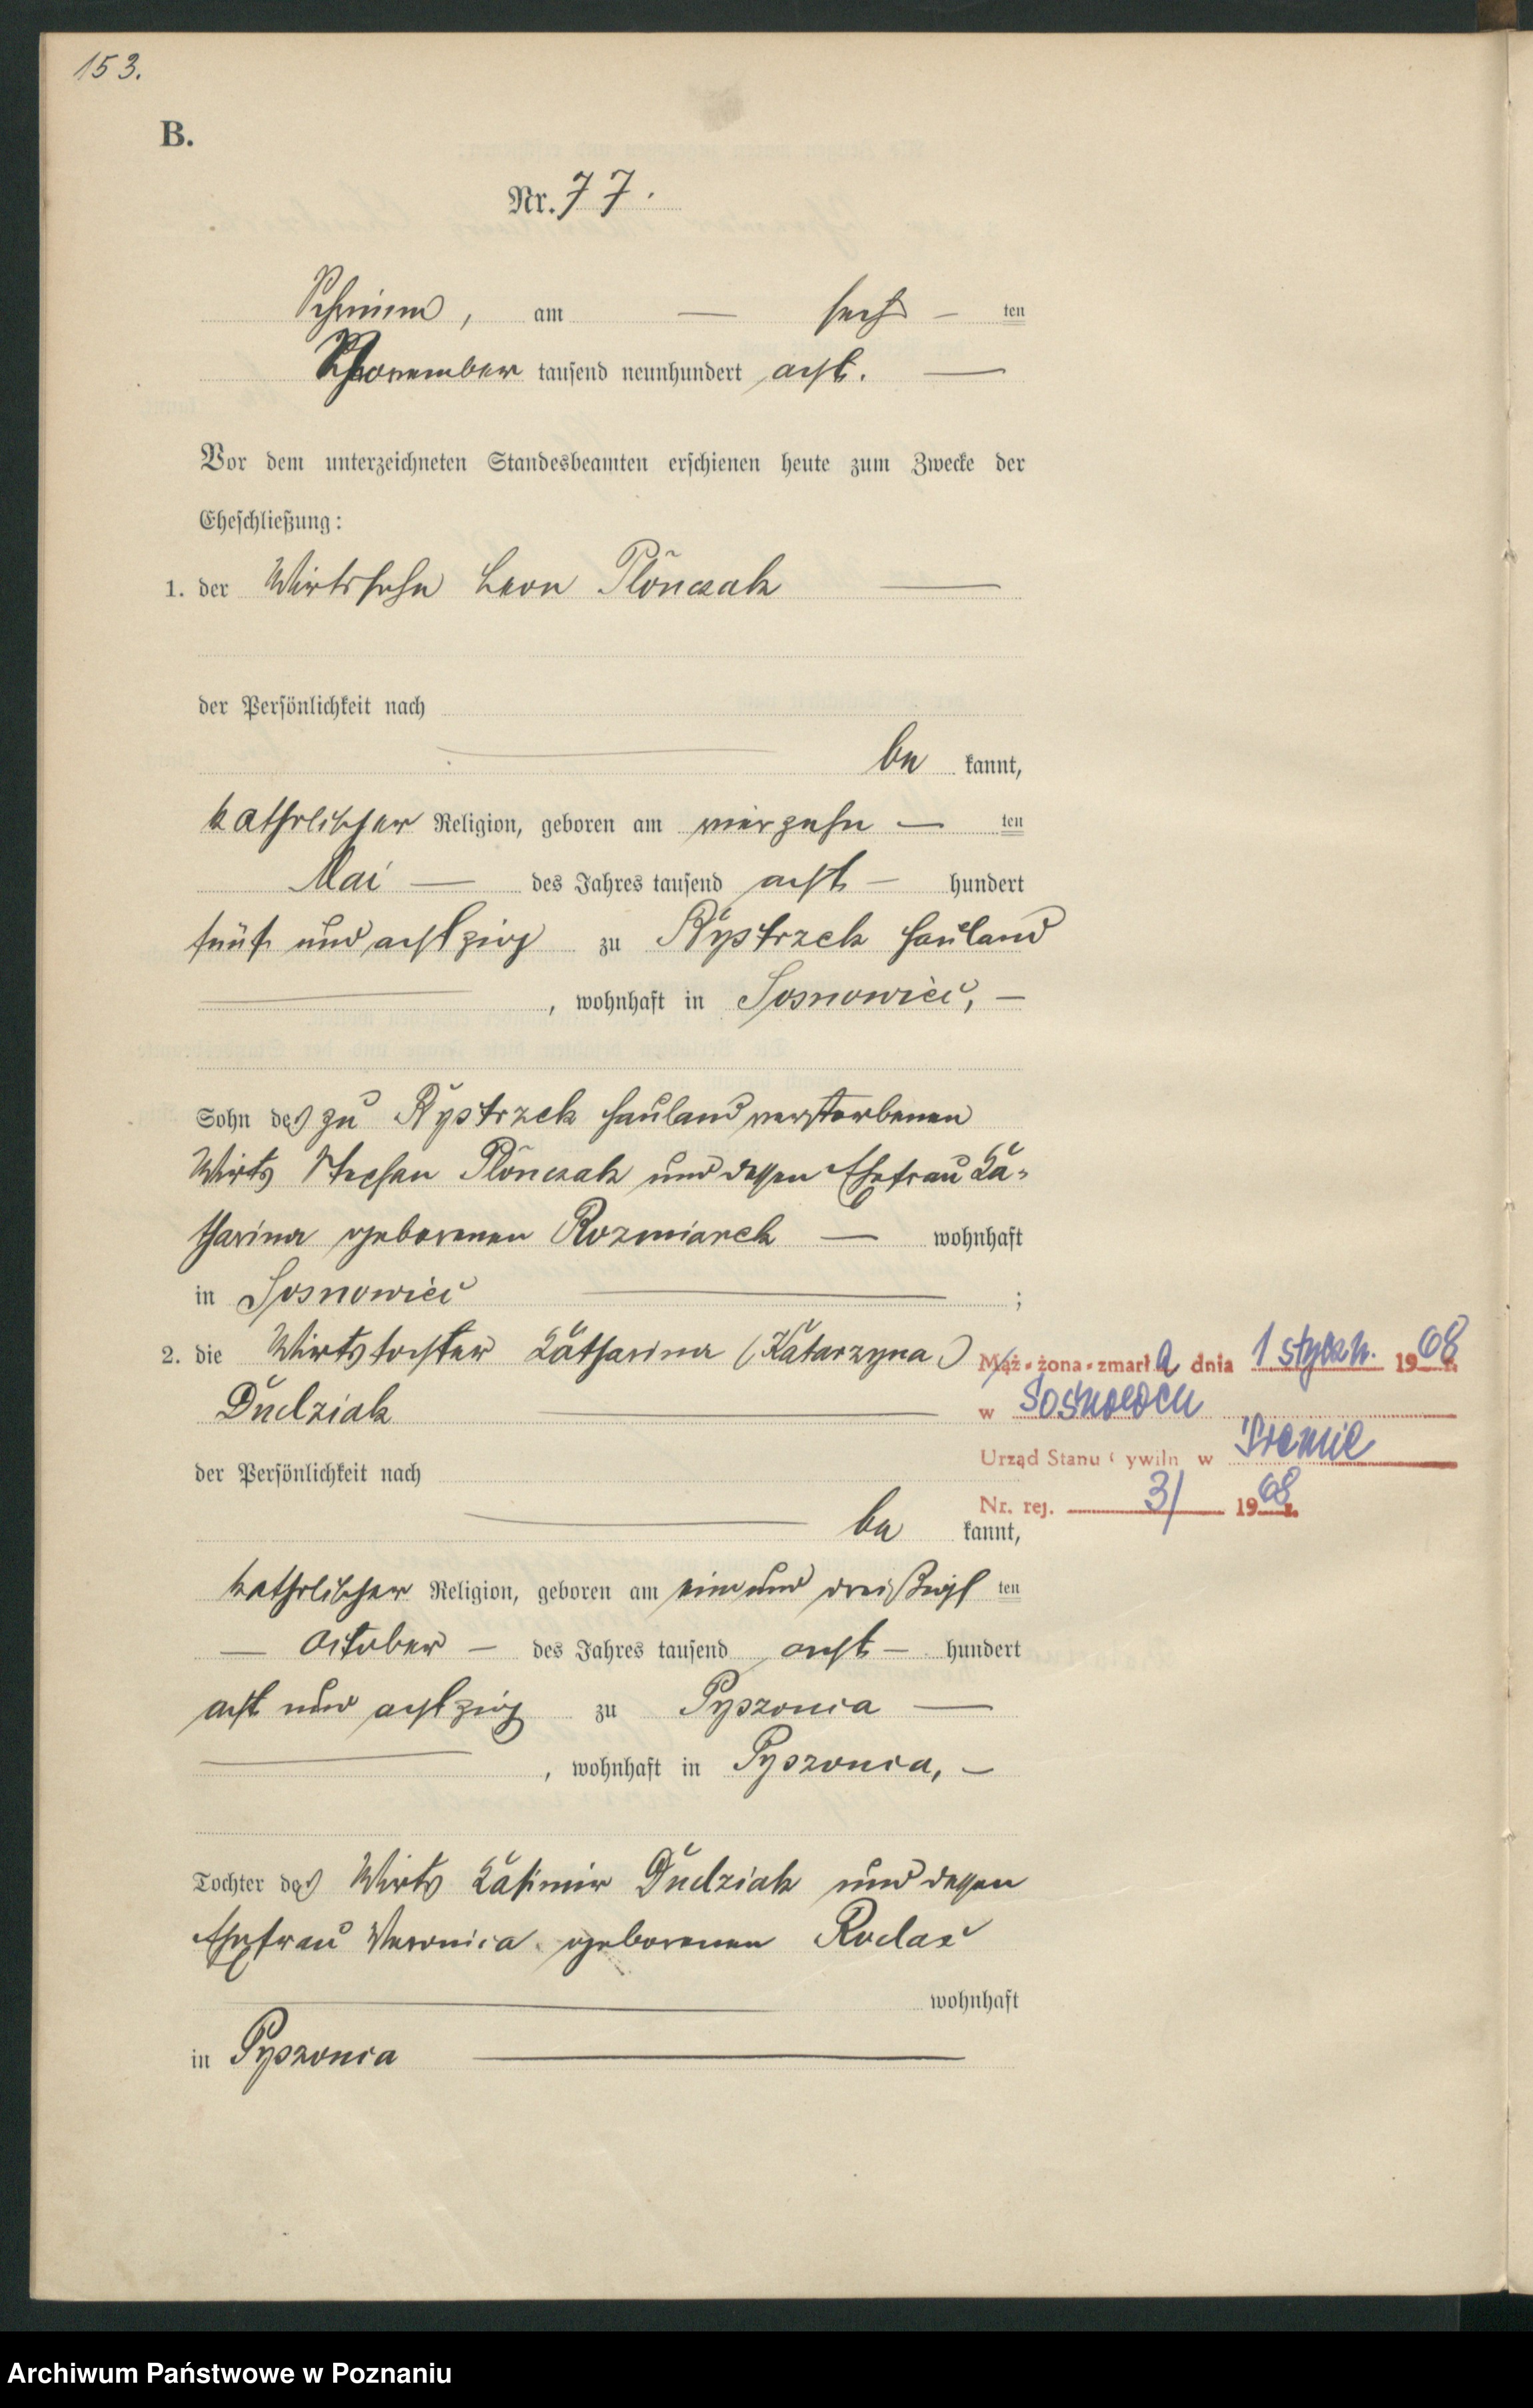 153.
B.
Nr. 77.
Schrimm, am — sechs — ten
November tausend neunhundert acht. —
Vor dem unterzeichneten Standesbeamten erschienen heute zum Zwecke der
Eheschließung:
1. der Wirtssohn Leon Plönczak —
der Persönlichkeit nach
— be kannt,
katholischer Religion, geboren am vierzehn — ten
Mai — des Jahres tausend acht — hundert
fünf und achtzig zu Bystrzek Hauland
—, wohnhaft in Sosnowiec, —
Sohn des zu Bystrzek Hauland verstorbenen
Wirts Stephan Plönczak und dessen Ehefrau Ka-
tharina geborenen Rozmiarek — wohnhaft
in Sosnowiec — ;
2. die Wirtstochter Katharina (Katarzyna)
Dudziak —
der Persönlichkeit nach
— be kannt,
katholischer Religion, geboren am einunddreißigs ten
— October — des Jahres tausend acht — hundert
acht und achtzig zu Pyszonca —
—, wohnhaft in Pyszonca, —
Tochter des Wirts Kasimir Dudziak und dessen
Ehefrau Veronica geborenen
— wohnhaft
in Pyszonca —
Mąż-żona-zmarł a dnia 1 styczn. 1968 r.
w
Urząd Stanu Cywiln w Śremie
Nr. rej. 3/ 1968 r.
Archiwum Państwowe w Poznaniu